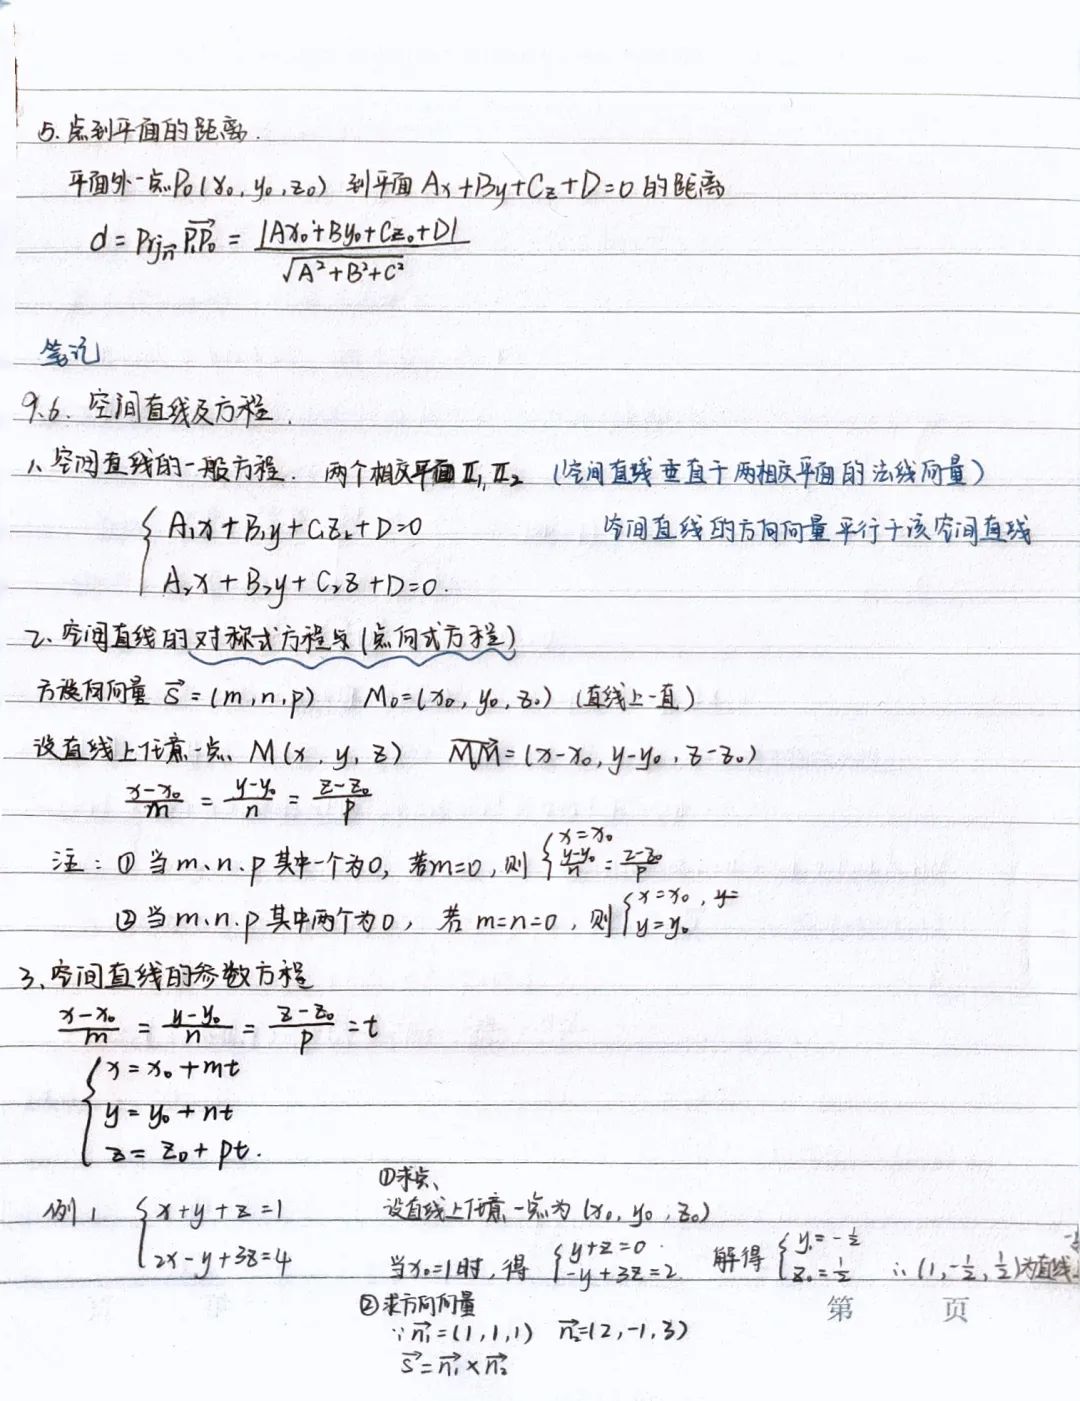 5. 点到平面的距离.
平面外一点P₀(x₀, y₀, z₀) 到平面 Ax+By+Cz+D=0 的距离
d = Prj_n⃗ P₁P₀⃗ = |Ax₀+By₀+Cz₀+D| / √(A²+B²+C²)
笔记
9.6. 空间直线及方程.
1、空间直线的一般方程. 两个相交平面 π₁, π₂ (空间直线垂直于两相交平面的法线向量)
{ A₁x+B₁y+C₁z+D=0 空间直线的方向向量平行于该空间直线
A₂x+B₂y+C₂z+D=0.
2、空间直线的对称式方程与(点向式方程)
方向向量 s⃗=(m,n,p) M₀=(x₀, y₀, z₀) (直线上一直)
设直线上任意一点、M(x, y, z) M₀M⃗=(x-x₀, y-y₀, z-z₀)
(x-x₀)/m = (y-y₀)/n = (z-z₀)/p
注: ① 当m、n、p其中一个为0, 若m=0, 则 { x=x₀
(y-y₀)/n = (z-z₀)/p
② 当m、n、p其中两个为0, 若 m=n=0, 则 { x=x₀, y=
y=y₀
3、空间直线的参数方程
(x-x₀)/m = (y-y₀)/n = (z-z₀)/p = t
{ x=x₀+mt
y=y₀+nt
z=z₀+pt.
例1 { x+y+z=1
2x-y+3z=4
①求点、
设直线上任意一点为 (x₀, y₀, z₀)
当x₀=1时, 得 { y+z=0. -y+3z=2. 解得 { y₀=-1/2 z₀=1/2 ∴(1, -1/2, 1/2)为直线上
②求方向向量
∵n₁⃗=(1,1,1) n₂⃗=(2,-1,3)
s⃗=n₁⃗×n₂⃗
第 页